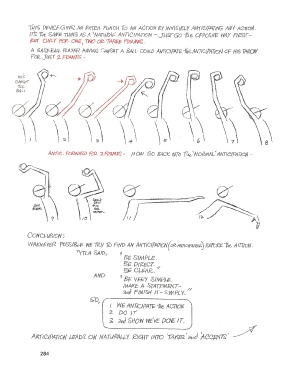 THIS DEVICE GIVES AN EXTRA PUNCH TO AN ACTION BY INVISIBLY ANTICIPATING ANY ACTION.
IT'S THE SAME THING AS A 'NATURAL' ANTICIPATION – JUST GO THE OPPOSITE WAY FIRST –
BUT ONLY FOR ONE, TWO OR THREE FRAMES.
A BASEBALL PLAYER HAVING CAUGHT A BALL COULD ANTICIPATE THE ANTICIPATION OF HIS THROW
FOR JUST 2 FRAMES –
HE'S CAUGHT THE BALL
1 2 3 4 5 6 7 8
ANTIC. FORWARD FOR 2 FRAMES – NOW GO BACK INTO THE 'NORMAL' ANTICIPATION –
9 10 11 12
CONCLUSION:
WHENEVER POSSIBLE WE TRY TO FIND AN ANTICIPATION (OR ANTICIPATIONS) BEFORE THE ACTION.
"YTLA SAID, "BE SIMPLE.
BE DIRECT.
BE CLEAR."
AND "BE VERY SIMPLE.
MAKE A STATEMENT –
and FINISH IT – SIMPLY."
SO,
1 WE ANTICIPATE the ACTION
2 DO IT
3 and SHOW WE'VE DONE IT.
ANTICIPATION LEADS ON NATURALLY RIGHT INTO 'TAKES' and 'ACCENTS'
284